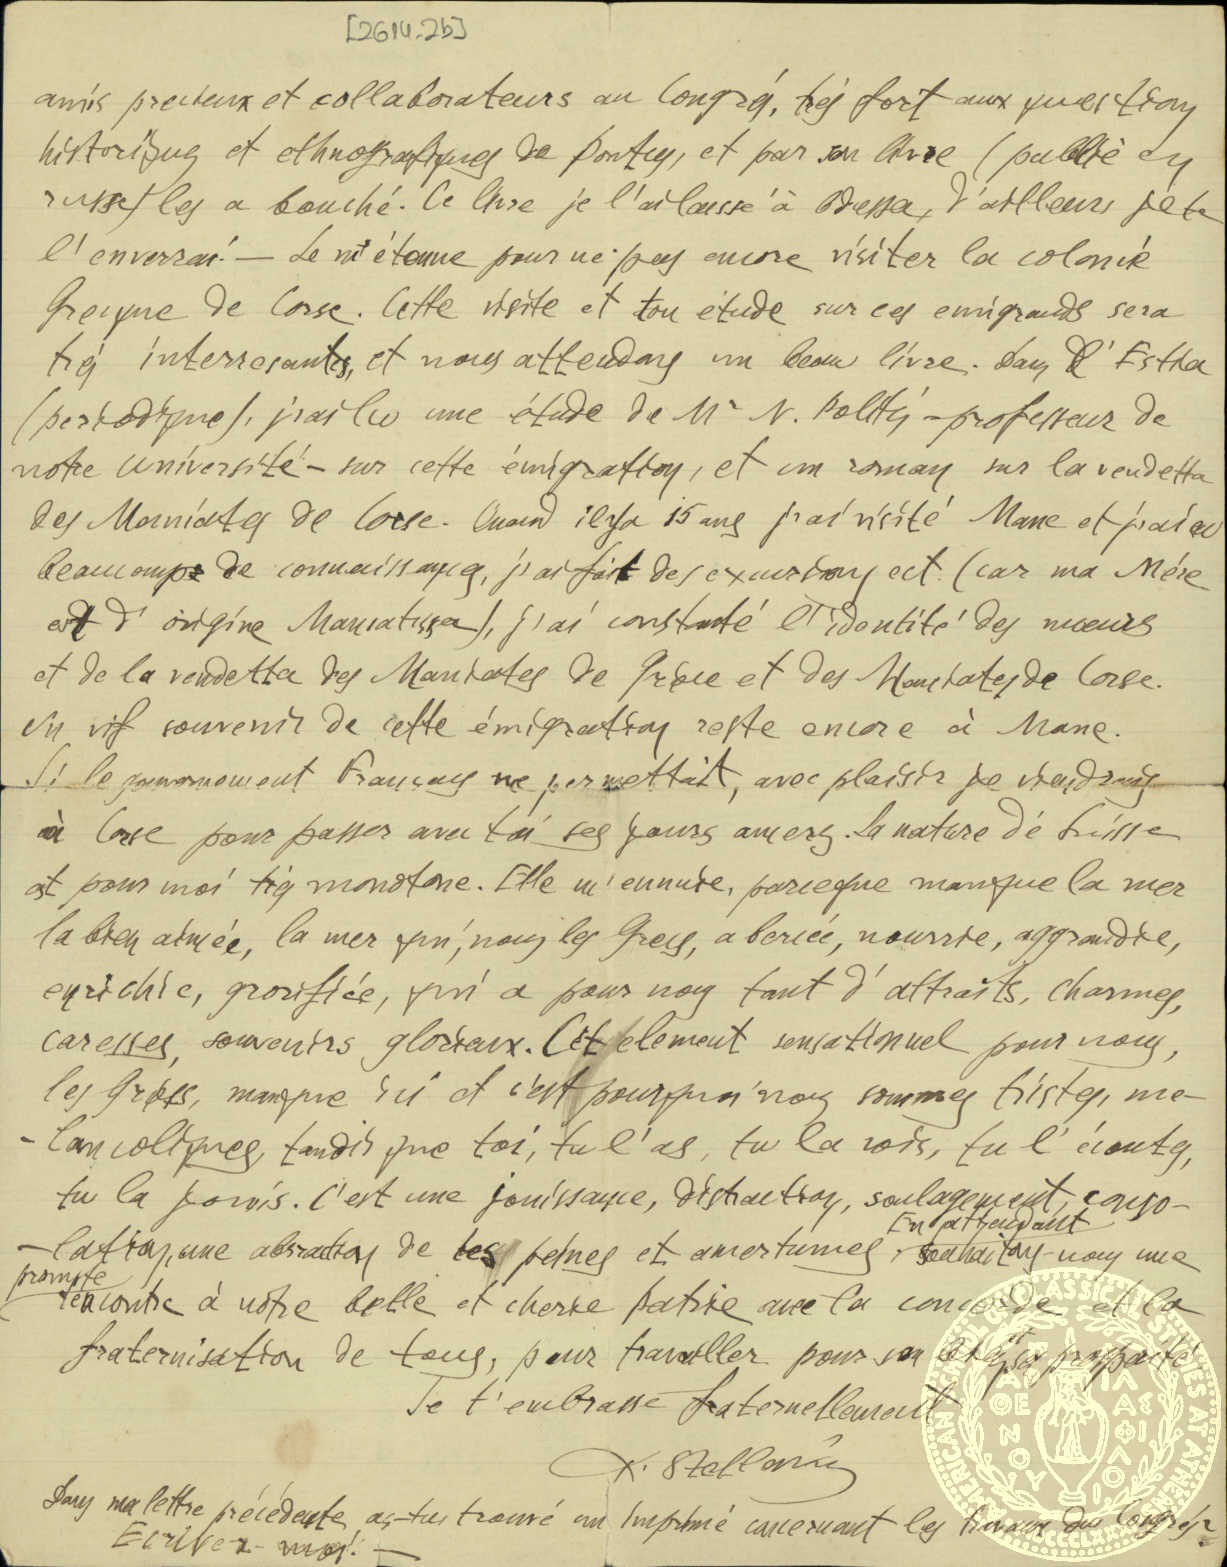 [2614-2b]
amis precieux et collaborateurs au Congré, trés fort aux question
historiques et ethnografiques de Pontus, et par son livre (publié en
russe) les a bouché. Ce livre je l'ai laissé à Odessa, d'ailleurs je te
l'enverrai. — Je m'étonne pour ne pas encore visiter la colonie
Grecque de Corse. Cette visite et ton étude sur ces emigrands sera
trés interresantes, et nous attendons un beau livre. Dans l'Estia
(periodique), j'ai lu une étude de Mr N. Politis - professeur de
notre université - sur cette émigration, et un roman sur la vendetta
des Maniates de Corse. Quand il y a 15 ans j'ai visité Mane et j'ai eu
beaucoups de connaissances, j'ai fait des excursions ect. (car ma Mére
est d'origine Maniatissa), j'ai constaté l'identité des mœurs
et de la vendetta des Maniates de Gréce et des Maniates de Corse.
Un vif souvenir de cette émigration reste encore à Mane.
Si le gouvernement Français me permettait, avec plaisir je viendrais
à Corse pour passer avec toi ses jours amers. La nature de Suisse
est pour moi trés monotone. Elle m'ennuie, parceque manque la mer
la bien aimée, la mer qui, nous les Grecs, a bercée, nourrie, aggrandie,
enrichie, glorifiée, qui a pour nous tant d'attraits, charmes,
caresses, souvenirs glorieux. Cet element sensationnel pour nous,
les Grecs, manque ici et c'est pourquoi nous sommes tristes, me-
-lancoliques, tandis que toi, tu l'as, tu la vois, tu l'écoutes,
tu la jouis. C'est une jouissance, distraction, soulagement, conso-
-lation, une abstraction de tes peines et amertumes. En attendant souhaitons-nous une
prompte rencontre à notre belle et cherie Patrie avec la concorde et la
fraternisation de tous, pour travailler pour son et sa prospérité
Je t'embrasse fraternellement
Dans ma lettre précédente as-tu trouvé un imprimé concernant les travaux du Congrés?
Ecrivez-moi. —
AMERICAN SCHOOL OF CLASSICAL STUDIES AT ATHENS